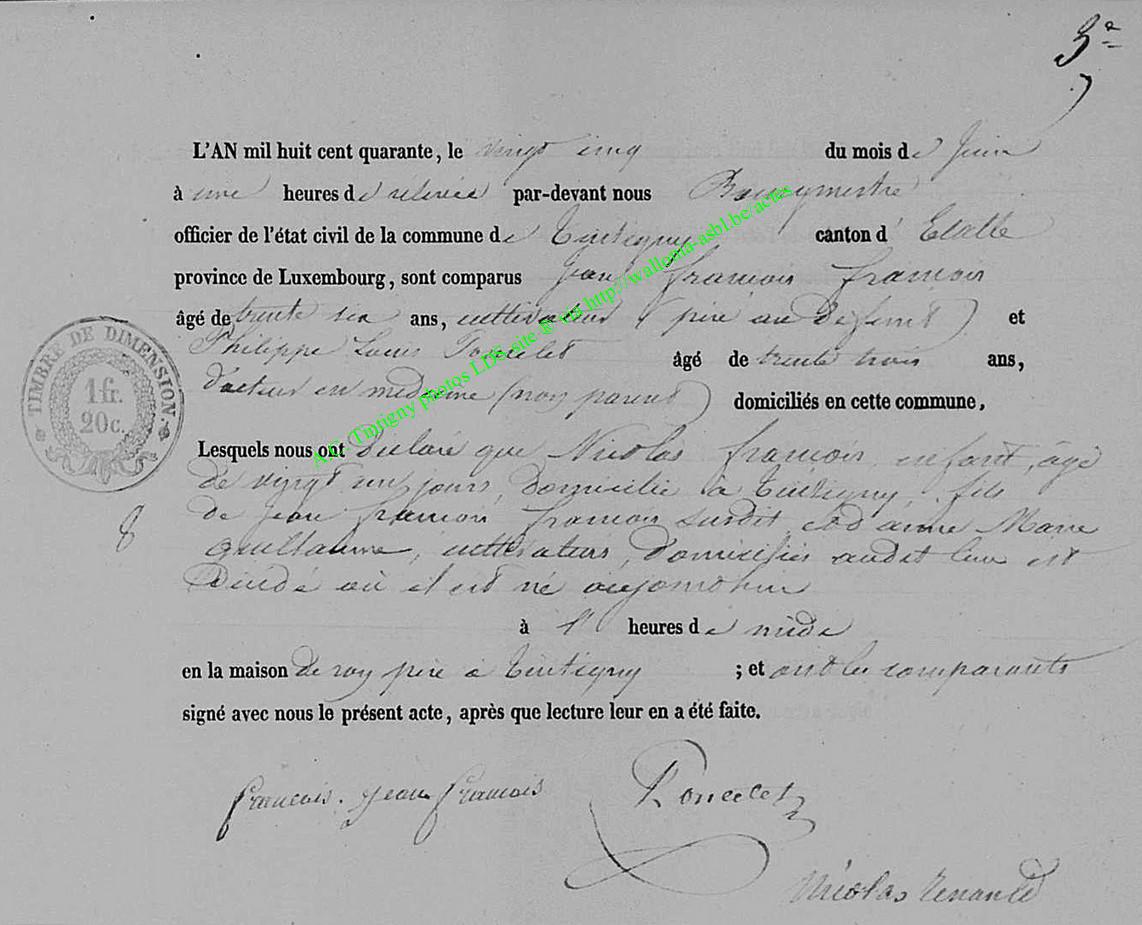 3e
L'AN mil huit cent quarante, le vingt cinq du mois de Juin
à une heures de relevée par-devant nous Bourgmestre
officier de l'état civil de la commune de Tintigny canton d' Etalle
province de Luxembourg, sont comparus Jean françois françois
âgé de trente six ans, cultivateur (père au défunt) et
Philippe Louis Poncelet âgé de trente trois ans,
docteur en médecine (non parent) domiciliés en cette commune,
Lesquels nous ont déclaré que Nicolas françois, enfant, âgé
de vingt un jours, domicilié à Tintigny, fils
de jean françois françois susdit et d'anne Marie
guillaume, cultivateurs, domiciliés audit lieu est
décédé où il est né aujourd'hui
à heures de midi
en la maison de son père à Tintigny ; et ont les comparants
signé avec nous le présent acte, après que lecture leur en a été faite.
françois. jean françois
Poncelet
Nicolas Renauld
8
TIMBRE DE DIMENSION.
1 fr.
20 c.
A.C. Tintigny photos LDS site ® via http://wallonia-asbl.be/actes